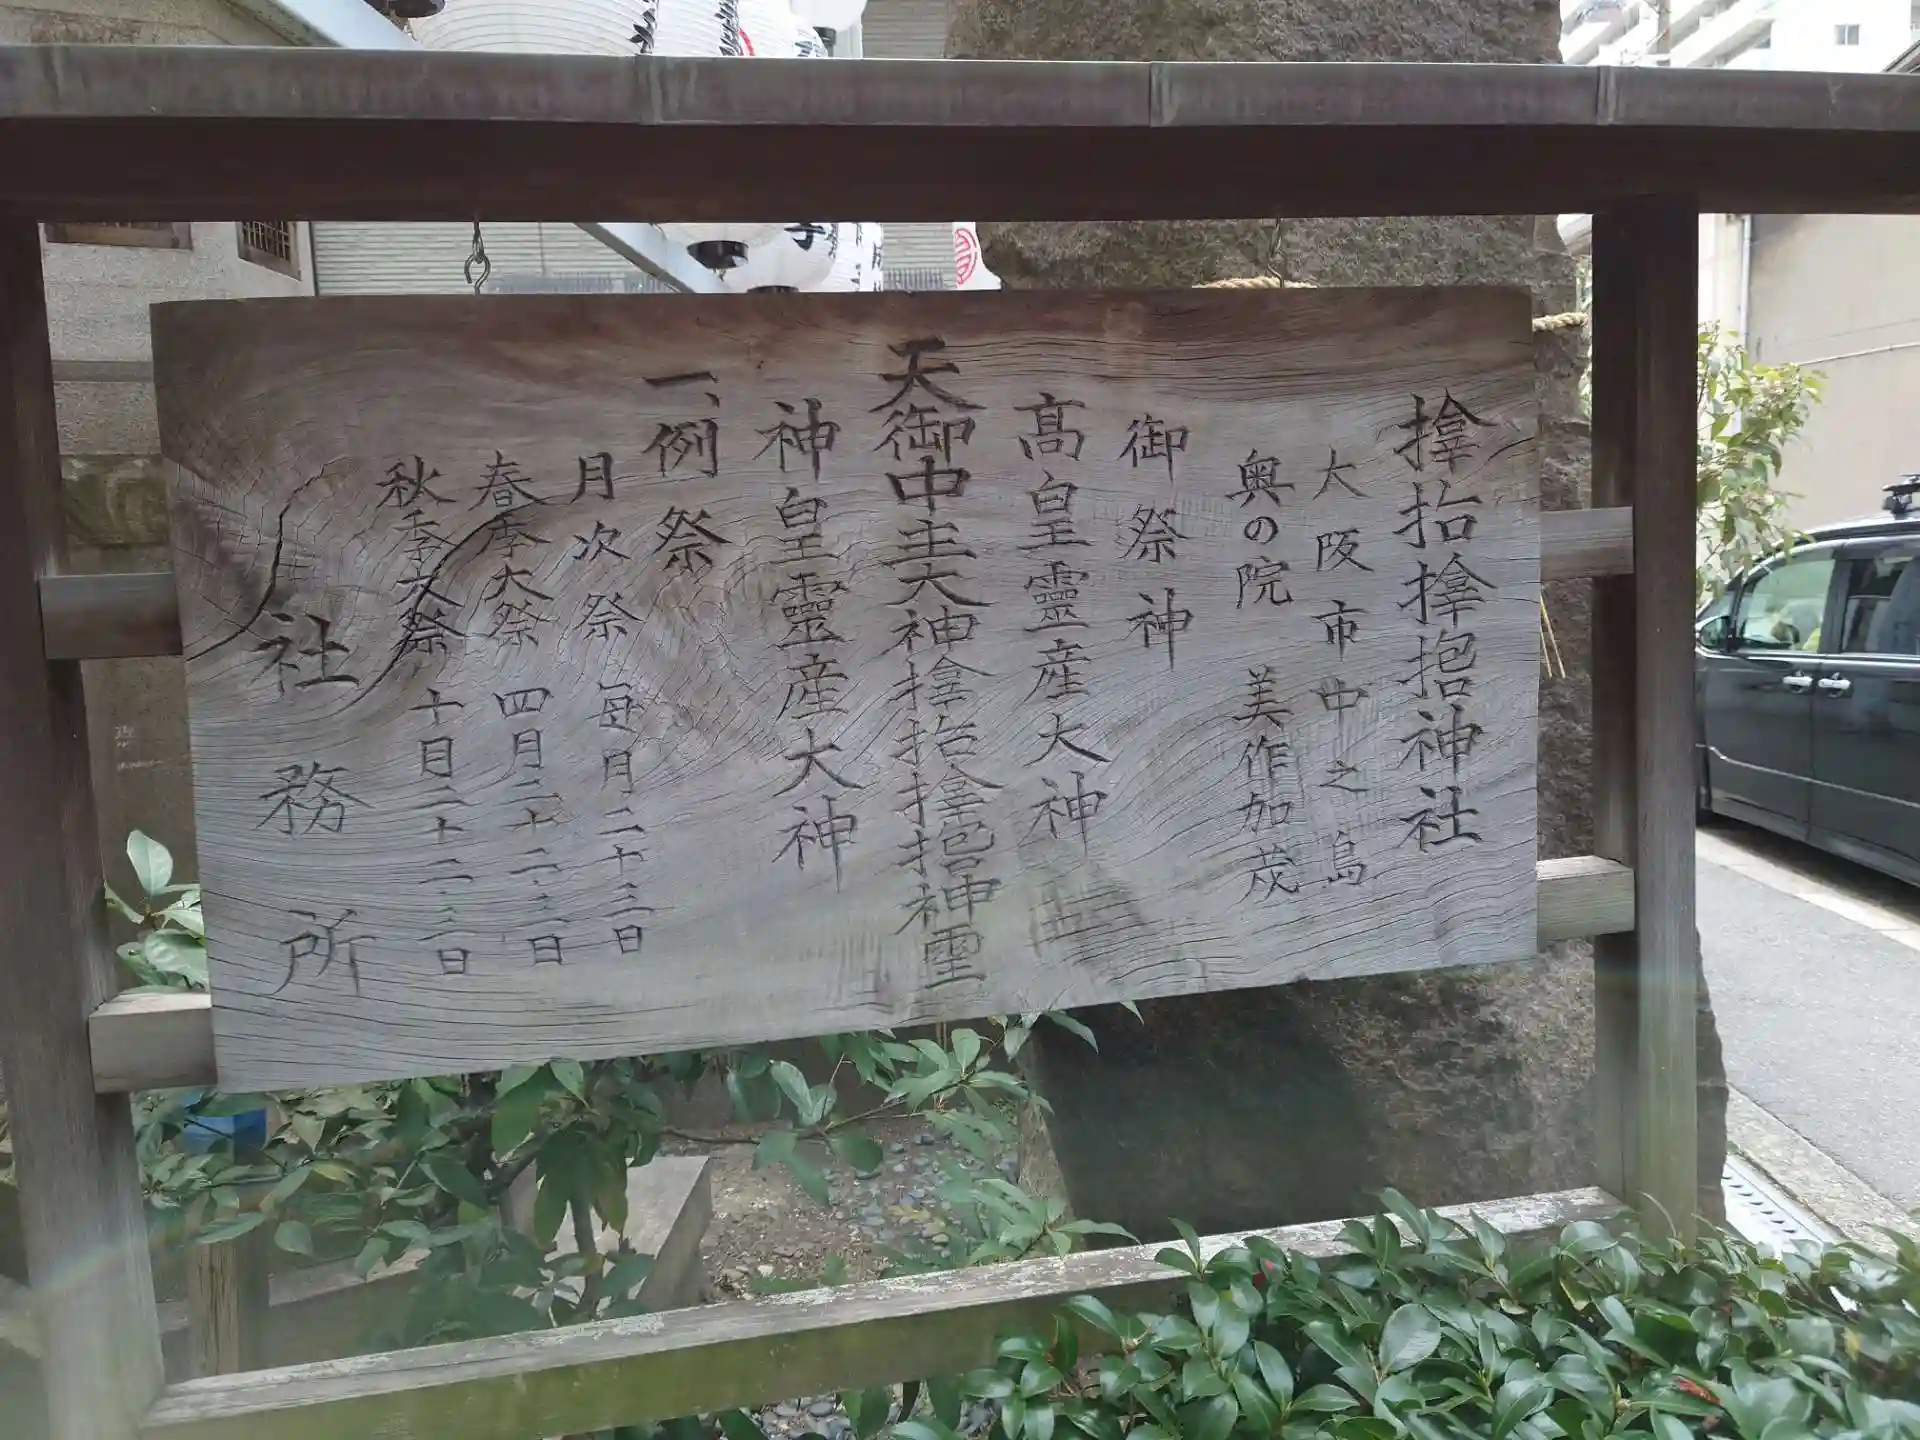 𪮷𫝼𪮷𪮇神社
大阪市中之島
奥の院 美作加茂
御祭神
髙皇靈産大神
天御中主大神𪮷𫝼𪮷𪮇神霊
神皇靈産大神
一、例祭
月次祭 毎月二十三日
春季大祭 四月二十二・三日
秋季大祭 十月二十二・三日
社務所